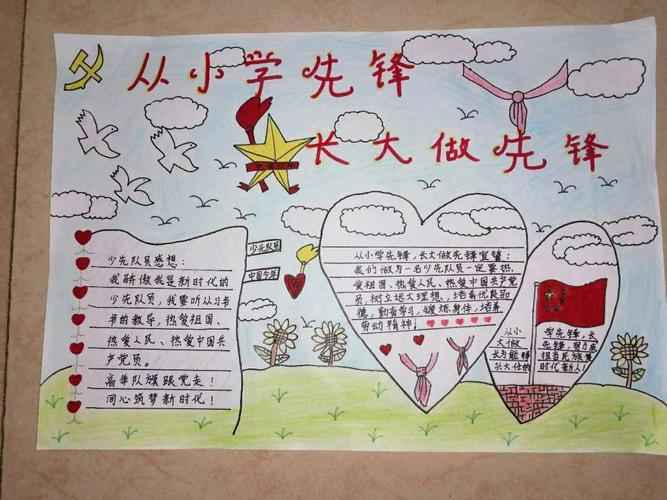 从小学先锋
长大做先锋
少先队员感想：
我骄傲我是新时代的
少先队员，我要听从习书
书的教导，热爱祖国、
热爱人民、热爱中国共
产党员。
高举队旗跟党走！
同心筑梦新时代！
少先队员
从小学先锋，长大做先锋宣誓：
我们做为一名少先队员一定要热
爱祖国、热爱人民、热爱中国共产党
员，树立远大理想，培养优良品
德，勤奋学习，锻炼身体，培养
劳动精神。
从小
大做
长为能够
长大任的
学先锋，长
先锋，努力成
担当民族复
时代新人！